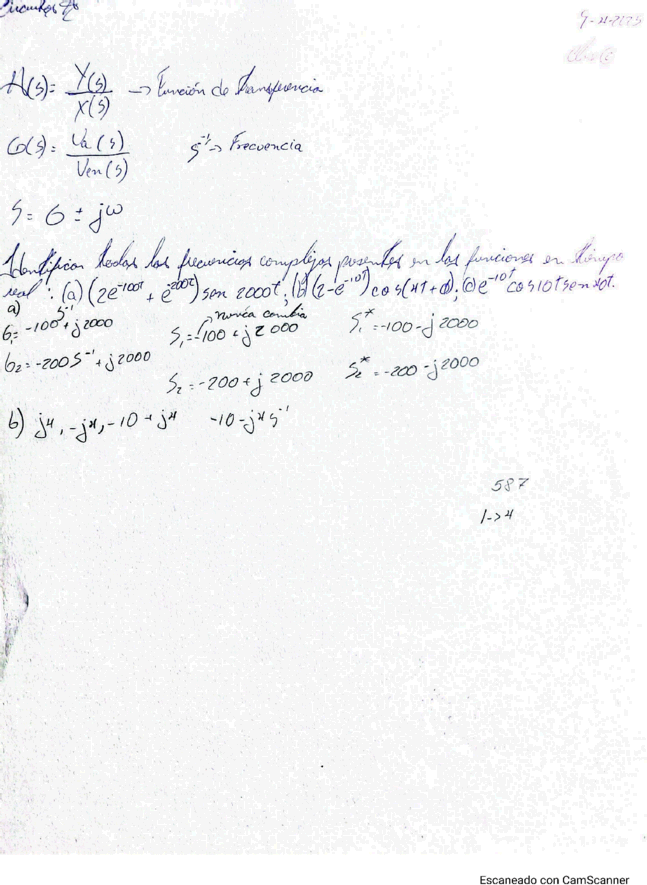 Circuitos
9-4-2025
Clase
H(s) = Y(s) / X(s) → Función de transferencia
G(s) = Va(s) / Ven(s)    s⁻¹ → Frecuencia
S = σ ± jω
Identifican todas las frecuencias complejas presentes en las funciones en tiempo
real: (a) (2e^-100t + e^-200t) sen 2000t; (b) (2-e^-10t) cos(4t+φ); (c) e^-10t cos10t sen40t.
a)
σ₁ = -100 s⁻¹ + j2000
nunca cambia
S₁ = -100 + j2000
S₁* = -100 - j2000
σ₂ = -200 s⁻¹ + j2000
S₂ = -200 + j2000
S₂* = -200 - j2000
b) j4, -j4, -10 + j4    -10 - j4 s⁻¹
587
1->4
Escaneado con CamScanner